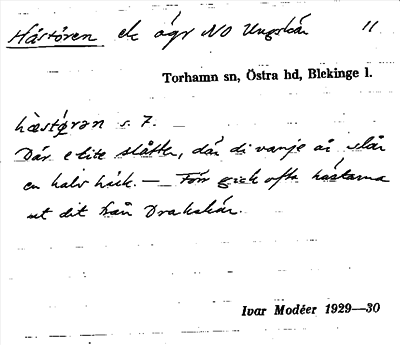 Håstören ek ägr NO Ungskär 11
Torhamn sn, Östra hd, Blekinge l.
hæstø̨rən s. 7.
Där e lite slåtter, där di varje år slår
en halv häck. — Förr gick ofta hästarna
ut dit från Drakskär.
Ivar Modéer 1929—30